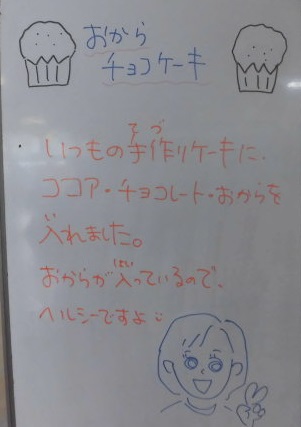 おから
チョコケーキ
いつもの手作りケーキに、
ココア・チョコレート・おからを
入れました。
おからが入っているので、
ヘルシーですよ